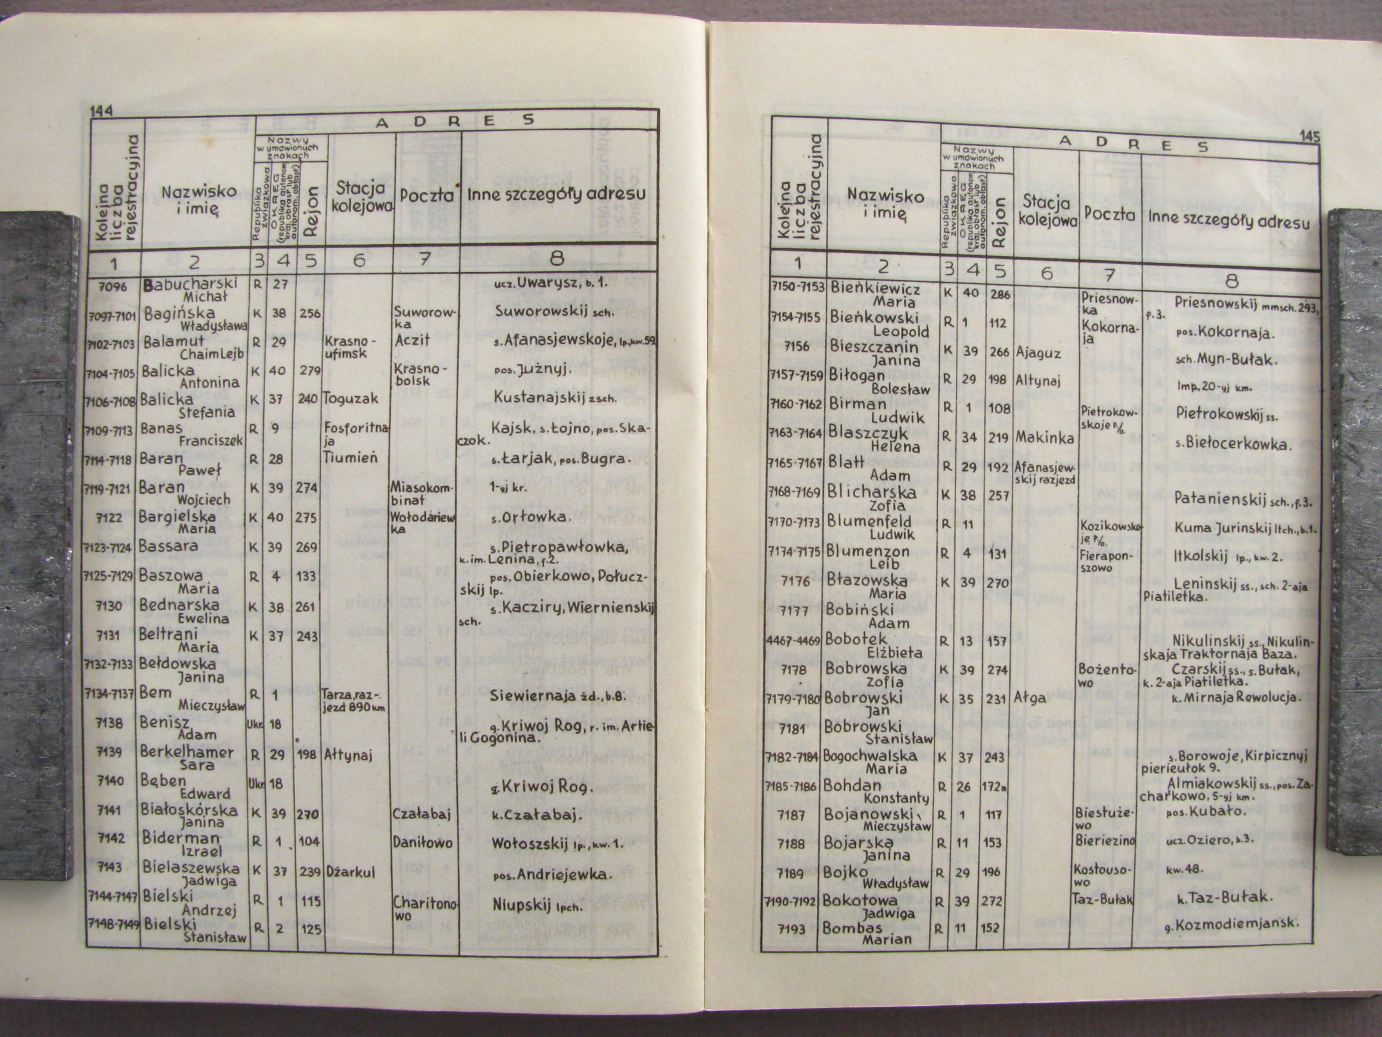 144
A D R E S
Kolejna liczba rejestracyjna
Nazwisko i imię
Nazwy w umówionych znakach
Republika związkowa
OKRĘG
Rejon
Stacja kolejowa
Poczta
Inne szczegóły adresu
1 2 3 4 5 6 7 8
7096 Babucharski R 27 ucz. Uwarysz, b. 1.
Michał
7097-7101 Bagińska K 38 256 Suworow- Suworowskij sch.
Władysława ka
7102-7103 Balamut R 29 Krasno- Aczit s. Afanasjewskoje, lp., kw. 59.
Chaim Lejb ufimsk
7104-7105 Balicka K 40 279 Krasno- pos. Jużnyj.
Antonina bolsk
7106-7108 Balicka K 37 240 Toguzak Kustanajskij zsch.
Stefania
7109-7113 Banas R 9 Fosforitna Kajsk, s. Łojno, pos. Ska-
Franciszek ja czok.
7114-7118 Baran R 28 Tiumień s. Łarjak, pos. Bugra.
Paweł
7119-7121 Baran K 39 274 Miasokom- 1-yj kr.
Wojciech binat
7122 Bargielska K 40 275 Wołodariew s. Orłowka.
Maria ka
7123-7124 Bassara K 39 269 s. Pietropawłowka,
k. im. Lenina, f. 2.
7125-7129 Baszowa R 4 133 pos. Obierkowo, Połucz-
Maria skij lp.
7130 Bednarska K 38 261 s. Kacziry, Wiernienskij
Ewelina sch.
7131 Beltrani K 37 243
Maria
7132-7133 Bełdowska
Janina
7134-7137 Bem R 1 Tarza, raz- Siewiernaja żd., b. 8.
Mieczysław jezd 890 km
7138 Benisz Ukr. 18 g. Kriwoj Rog, r. im. Artie-
Adam li Gogonina.
7139 Berkelhamer R 29 198 Ałtynaj
Sara
7140 Bęben Ukr. 18 g. Kriwoj Rog.
Edward
7141 Białoskórska K 39 270 Czałabaj k. Czałabaj.
Janina
7142 Biderman R 1 104 Daniłowo Wołoszskij lp., kw. 1.
Izrael
7143 Bielaszewska K 37 239 Dżarkul pos. Andriejewka.
Jadwiga
7144-7147 Bielski R 1 115 Charitono- Niupskij lpch.
Andrzej wo
7148-7149 Bielski R 2 125
Stanisław
145
A D R E S
Kolejna liczba rejestracyjna
Nazwisko i imię
Nazwy w umówionych znakach
Republika związkowa
OKRĘG
Rejon
Stacja kolejowa
Poczta
Inne szczegóły adresu
1 2 3 4 5 6 7 8
7150-7153 Bieńkiewicz K 40 286 Priesnow- Priesnowskij mmsch. 293,
Maria ka f. 3.
7154-7155 Bieńkowski R 1 112 Kokorna- pos. Kokornaja.
Leopold ja
7156 Bieszczanin K 39 266 Ajaguz sch. Myn-Bułak.
Janina
7157-7159 Biłogan R 29 198 Altynaj lmp. 20-yj km.
Bolesław
7160-7162 Birman R 1 108 Pietrokow- Pietrokowskij ss.
Ludwik skoje p/o.
7163-7164 Blaszczyk R 34 219 Makinka s. Biełocerkowka.
Helena
7165-7167 Blatt R 29 192 Afanasjew-
Adam skij razjezd
7168-7169 Blicharska K 38 257 Patanienskij sch., f. 3.
Zofia
7170-7173 Blumenfeld R 11 Kozikowsko Kuma Jurinskij ltch., b. 1.
Ludwik je p/o.
7174-7175 Blumenzon R 4 131 Fierapon- Itkolskij lp., kw. 2.
Leib szowo
7176 Błazowska K 39 270 Leninskij ss., sch. 2-aja
Maria Piatiletka.
7177 Bobiński
Adam
4467-4469 Bobołek R 13 157 Nikulinskij ss., Nikulin-
Elżbieta skaja Traktornaja Baza.
7178 Bobrowska K 39 274 Bożento- Czarskij ss., s. Bułak,
Zofia wo k. 2-aja Piatiletka.
7179-7180 Bobrowski K 35 231 Ałga k. Mirnaja Rewolucja.
Jan
7181 Bobrowski
Stanisław
7182-7184 Bogochwalska K 37 243 s. Borowoje, Kirpicznyj
Maria pierieułok 9.
7185-7186 Bohdan R 26 172a Almiakowskij ss., pos. Za-
Konstanty charkowo, 5-yj km.
7187 Bojanowski R 1 117 Biestuże- pos. Kubało.
Mieczysław wo
7188 Bojarska R 11 153 Bieriezino ucz. Oziero, b. 3.
Janina
7189 Bojko R 29 196 Kostouso- kw. 48.
Władysław wo
7190-7192 Bokotowa R 39 272 Taz-Bułak k. Taz-Bułak.
Jadwiga
7193 Bombas R 11 152 g. Kozmodiemjansk.
Marian